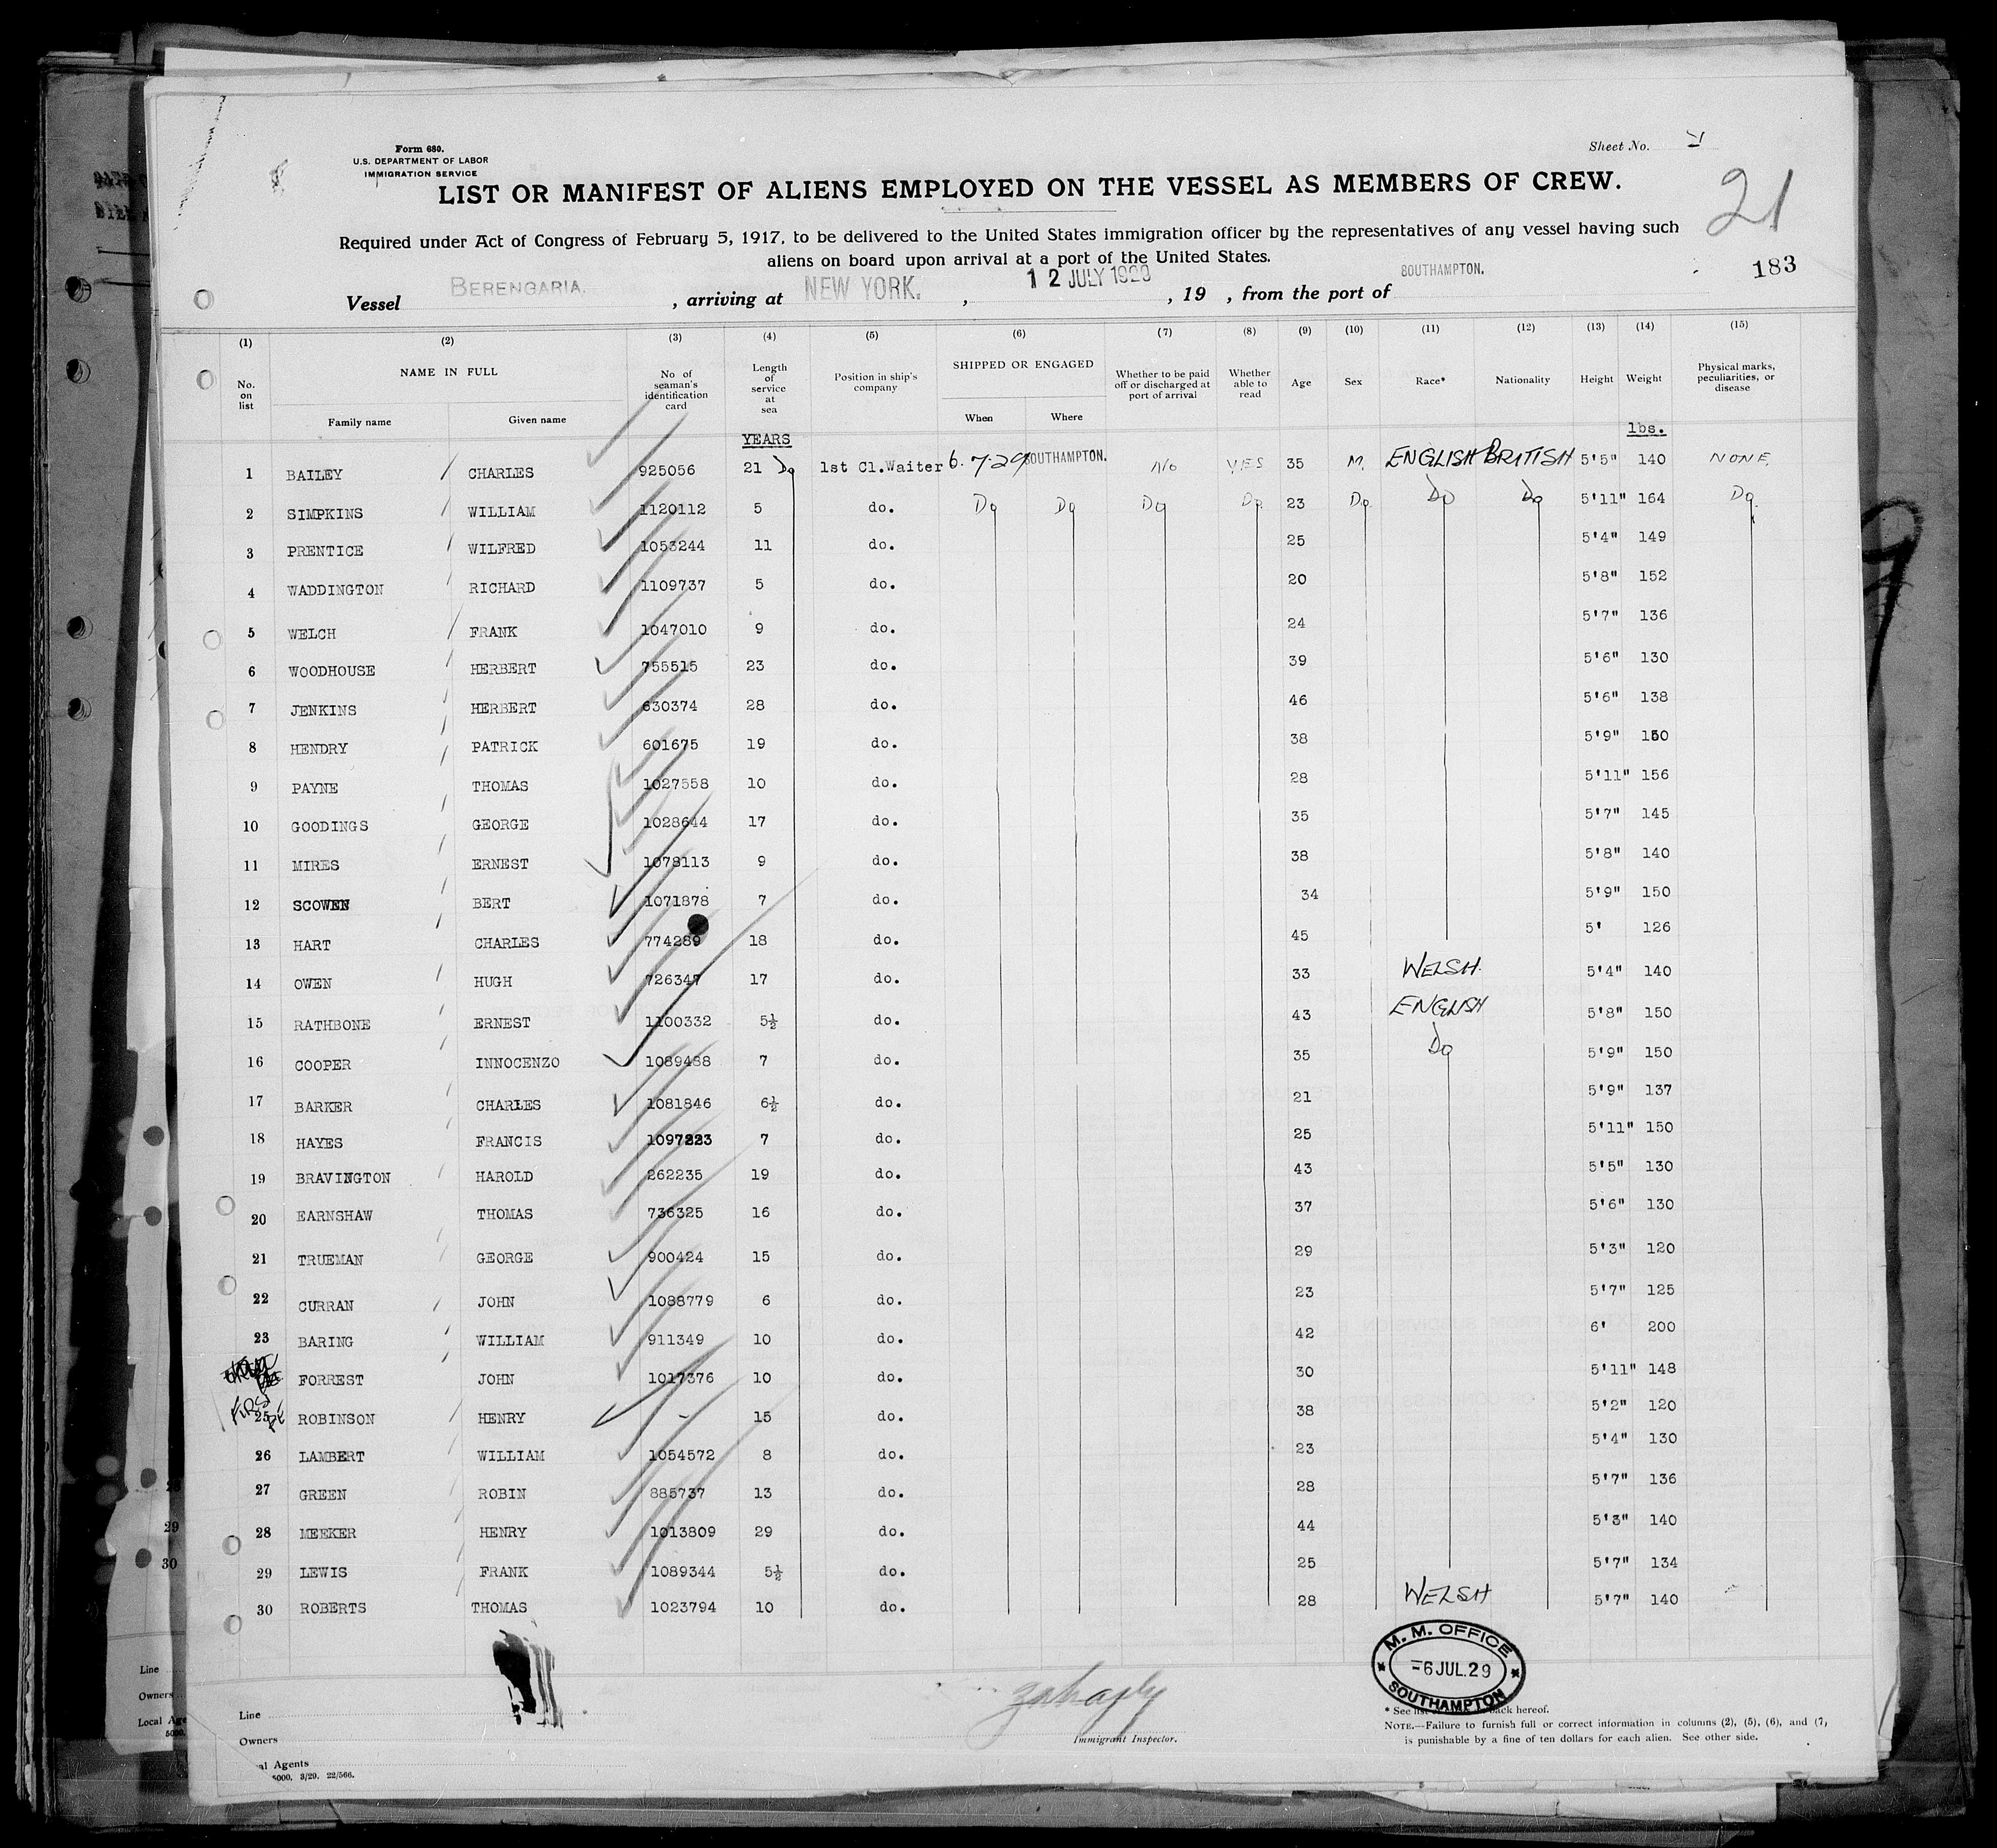 Form 680.
U.S. DEPARTMENT OF LABOR
IMMIGRATION SERVICE
Sheet No.
LIST OR MANIFEST OF ALIENS EMPLOYED ON THE VESSEL AS MEMBERS OF CREW.
21
Required under Act of Congress of February 5, 1917, to be delivered to the United States immigration officer by the representatives of any vessel having such
aliens on board upon arrival at a port of the United States.
183
Vessel BERENGARIA. , arriving at NEW YORK. , 12 JULY 1929 , 19 , from the port of SOUTHAMPTON.
(1) (2) (3) (4) (5) (6) (7) (8) (9) (10) (11) (12) (13) (14) (15)
No. on list NAME IN FULL Family name Given name No. of seaman's identification card Length of service at sea Position in ship's company SHIPPED OR ENGAGED When Where Whether to be paid off or discharged at port of arrival Whether able to read Age Sex Race* Nationality Height Weight Physical marks, peculiarities, or disease
YEARS lbs.
1 BAILEY CHARLES 925056 21 Do 1st Cl.Waiter 6.7.29 SOUTHAMPTON. No YES 35 M. ENGLISH BRITISH 5'5" 140 NONE.
2 SIMPKINS WILLIAM 1120112 5 do. Do Do Do Do 23 Do Do Do 5'11" 164 Do
3 PRENTICE WILFRED 1053244 11 do. 25 5'4" 149
4 WADDINGTON RICHARD 1109737 5 do. 20 5'8" 152
5 WELCH FRANK 1047010 9 do. 24 5'7" 136
6 WOODHOUSE HERBERT 755515 23 do. 39 5'6" 130
7 JENKINS HERBERT 630374 28 do. 46 5'6" 138
8 HENDRY PATRICK 601675 19 do. 38 5'9" 150
9 PAYNE THOMAS 1027558 10 do. 28 5'11" 156
10 GOODINGS GEORGE 1028644 17 do. 35 5'7" 145
11 MIRES ERNEST 1078113 9 do. 38 5'8" 140
12 SCOWEN BERT 1071878 7 do. 34 5'9" 150
13 HART CHARLES 774289 18 do. 45 5' 126
14 OWEN HUGH 726347 17 do. 33 WELSH. 5'4" 140
15 RATHBONE ERNEST 1100332 5½ do. 43 ENGLISH 5'8" 150
16 COOPER INNOCENZO 1089488 7 do. 35 Do 5'9" 150
17 BARKER CHARLES 1081846 6½ do. 21 5'9" 137
18 HAYES FRANCIS 1097223 7 do. 25 5'11" 150
19 BRAVINGTON HAROLD 262235 19 do. 43 5'5" 130
20 EARNSHAW THOMAS 736325 16 do. 37 5'6" 130
21 TRUEMAN GEORGE 900424 15 do. 29 5'3" 120
22 CURRAN JOHN 1088779 6 do. 23 5'7" 125
23 BARING WILLIAM 911349 10 do. 42 6' 200
FORREST JOHN 1017376 10 do. 30 5'11" 148
25 ROBINSON HENRY - 15 do. 38 5'2" 120
26 LAMBERT WILLIAM 1054572 8 do. 23 5'4" 130
27 GREEN ROBIN 885737 13 do. 28 5'7" 136
28 MEEKER HENRY 1013809 29 do. 44 5'3" 140
29 LEWIS FRANK 1089344 5½ do. 25 5'7" 134
30 ROBERTS THOMAS 1023794 10 do. 28 WELSH 5'7" 140
M. M. OFFICE
-6 JUL.29
SOUTHAMPTON
Line
Owners
Agents
5000. 3/29. 22/566.
Immigrant Inspector.
* See list back hereof.
NOTE.—Failure to furnish full or correct information in columns (2), (5), (6), and (7,
is punishable by a fine of ten dollars for each alien. See other side.
28
29
30
Line
Owners
Local Age
5000.